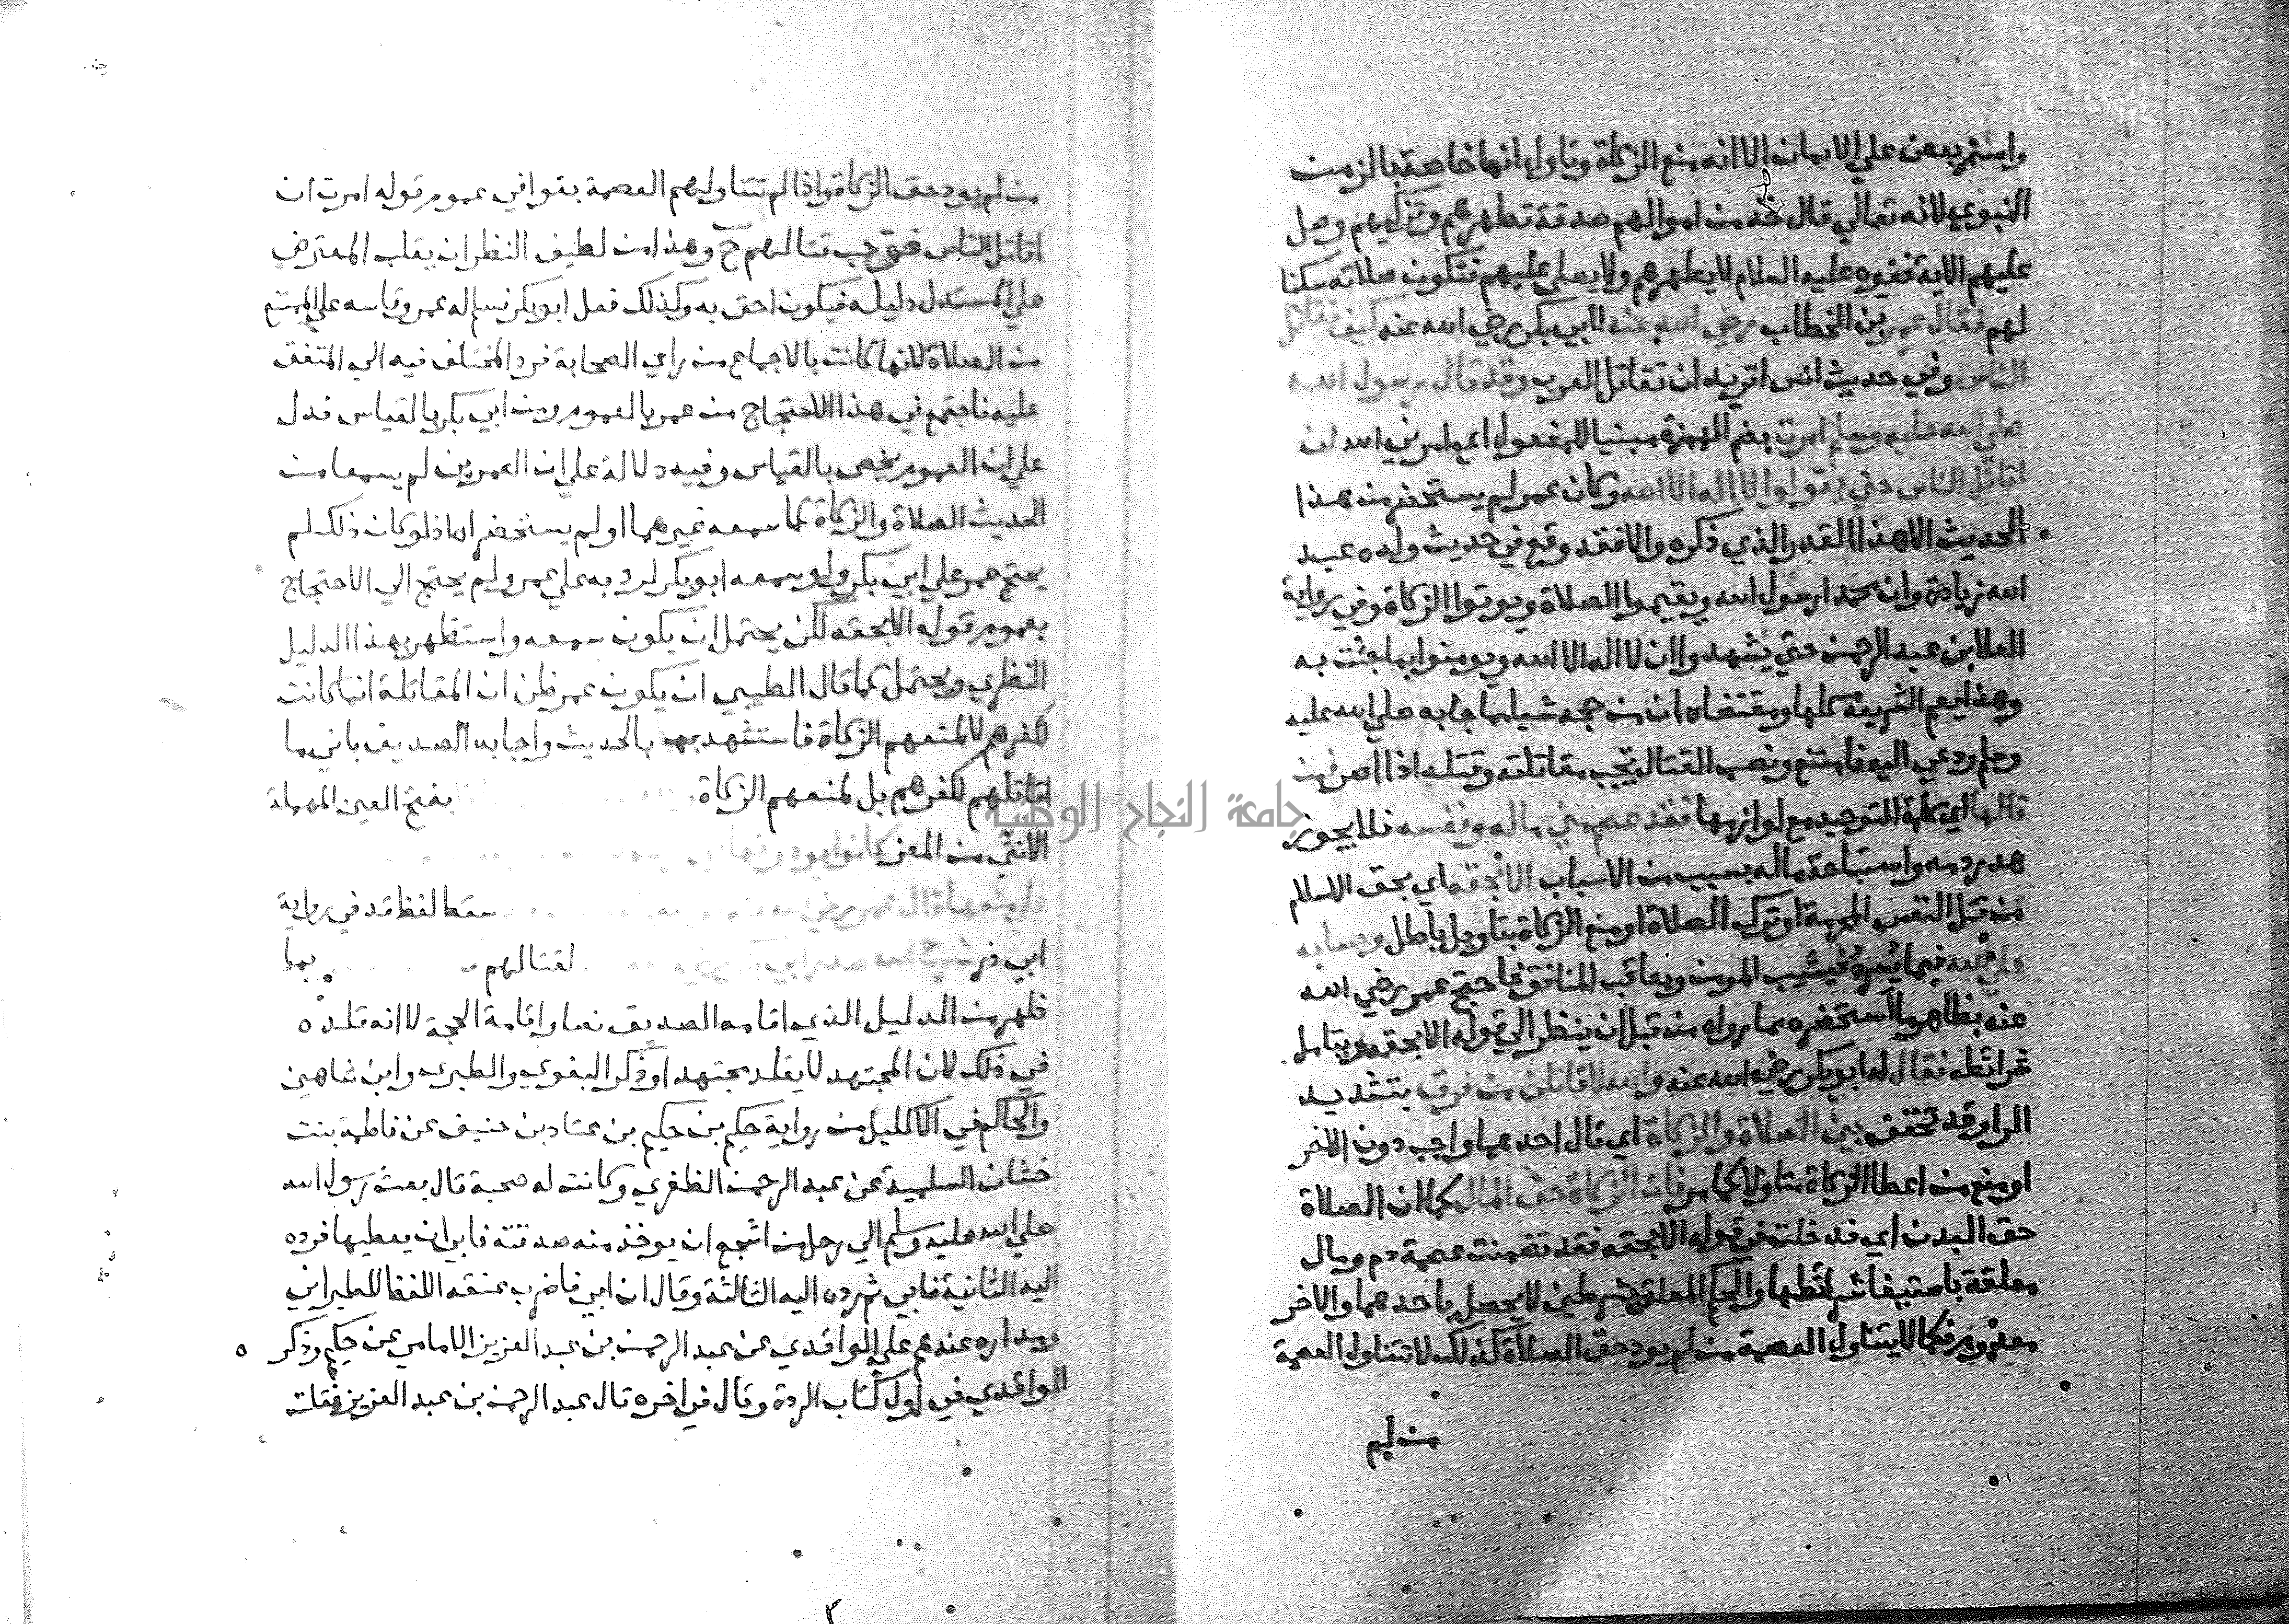 واستمر بعض علي الايمان الا انه منع الزكاة وتاول انها خاصة بالزمن
النبوي لانه تعالي قال خذ من اموالهم صدقة تطهرهم وتزكيهم وصل
عليهم الاية فغيره عليه السلام لا يطهرهم ولا يصلي عليهم فتكون صلاته سكنا
لهم فقال عمر بن الخطاب رضي الله عنه لابي بكر رضي الله عنه كيف تقاتل
الناس وفي حديث انس اتريد ان تقاتل العرب وقد قال رسول الله
صلي الله عليه وسلم امرت بضم الهمزة مبنيا للمفعول اي امرني الله ان
اقاتل الناس حتي يقولوا لا اله الا الله وكان عمر لم يستحضر من هذا
الحديث الا هذا القدر الذي ذكره والا فقد وقع في حديث ولده عبد
الله زيادة وان محمدا رسول الله ويقيموا الصلاة ويوتوا الزكاة وفي رواية
العلا بن عبد الرحمن حتي يشهدوا ان لا اله الا الله ويومنوا بما جئت به
وهذا يعم الشريعة كلها ومقتضاه ان من جحد شيا مما جا به صلي الله عليه
وسلم ودعي اليه فامتنع ونصب القتال تجب مقاتلته وقتله اذا اصر فمن
قالها اي كلمة التوحيد مع لوازمها فقد عصم مني ماله ونفسه فلا يجوز
هدر دمه واستباحة ماله بسبب من الاسباب الا بحقه اي بحق الاسلام
من قتل النفس المحرمة او ترك الصلاة او منع الزكاة بتاويل باطل وحسابه
علي الله فيما يسره فيثيب المومن ويعاقب المنافق فاحتج عمر رضي الله
عنه بظاهر ما استحضره مما رواه من قبل ان ينظر الي قوله الا بحقه ويتامل
شرائطه فقال له ابو بكر رضي الله عنه والله لاقاتلن من فرق بتشديد
الرا وقد تخفف بين الصلاة والزكاة اي قال احدهما واجب دون الاخر
او منع من اعطا الزكاة متاولا كما مر فان الزكاة حق المال كما ان الصلاة
حق البدن اي فدخلت في قوله الا بحقه فقد تضمنت عصمة دم ومال
معلقة باستيفا شرائطها والحكم المعلق بشرطين لا يحصل باحدهما والاخر
معدوم فكما لا يتناول العصمة من لم يود حق الصلاة كذلك لا تتناول العصمة
من لم
من لم يود حق الزكاة واذا لم تتناولهم العصمة بقوا في عموم قوله امرت ان
اقاتل الناس فوجب قتالهم ح وهذا من لطيف النظر ان يقلب المعترض
علي المستدل دليله فيكون احق به وكذلك فعل ابو بكر فسلم له عمر وقاسه علي الممتنع
من الصلاة لانها كانت بالاجماع من راي الصحابة فرد المختلف فيه الي المتفق
عليه فاجتمع في هذا الاحتجاج من عمر بالعموم ومن ابي بكر بالقياس فدل
علي ان العموم يخص بالقياس وفيه دلالة علي ان العمرين لم يسمعا من
الحديث الصلاة والزكاة كما سمعه غيرهما او لم يستحضراه اذ لو كان ذلك لم
يحتج عمر علي ابي بكر ولو سمعه ابو بكر لرد به علي عمر ولم يحتج الي الاحتجاج
بعموم قوله الا بحقه لكن يحتمل ان يكون سمعه واستظهر بهذا الدليل
النظري ويحتمل كما قال الطيبي ان يكون عمر ظن ان المقاتلة انما كانت
لكفرهم لا لمنعهم الزكاة فاستشهد بالحديث واجابه الصديق باني ما
اقاتلهم لكفرهم بل لمنعهم الزكاة بفتح العين المهملة
الانثي من المعز كانوا يودونها
علي منعها قال عمر سقط لفظ قد في رواية
ابي ذر لقتالهم بما
ظهر من الدليل الذي اقامه الصديق نصا واقامة الحجة لا انه قلده
في ذلك لان المجتهد لا يقلد مجتهدا وذكر البغوي والطبري وابن شاهين
والحاكم في الاكليل من رواية حكيم بن حكيم بن عباد بن حنيف عن فاطمة بنت
خشاف السلمية عن عبد الرحمن الظفري وكانت له صحبة قال بعث رسول الله
صلي الله عليه وسلم الي رجل من اشجع ان يوخذ منه صدقته فابي ان يعطيها فرده
اليه الثانية فابي ثم رده اليه الثالثة وقال ان ابي فاضرب عنقه اللفظ للطبراني
ومداره عندهم علي الواقدي عن عبد الرحمن بن عبد العزيز الامامي عن حكيم وذكر
الواقدي في اول كتاب الردة وقال في اخره قال عبد الرحمن بن عبد العزيز فقلت
جامعة النجاح الوطنية